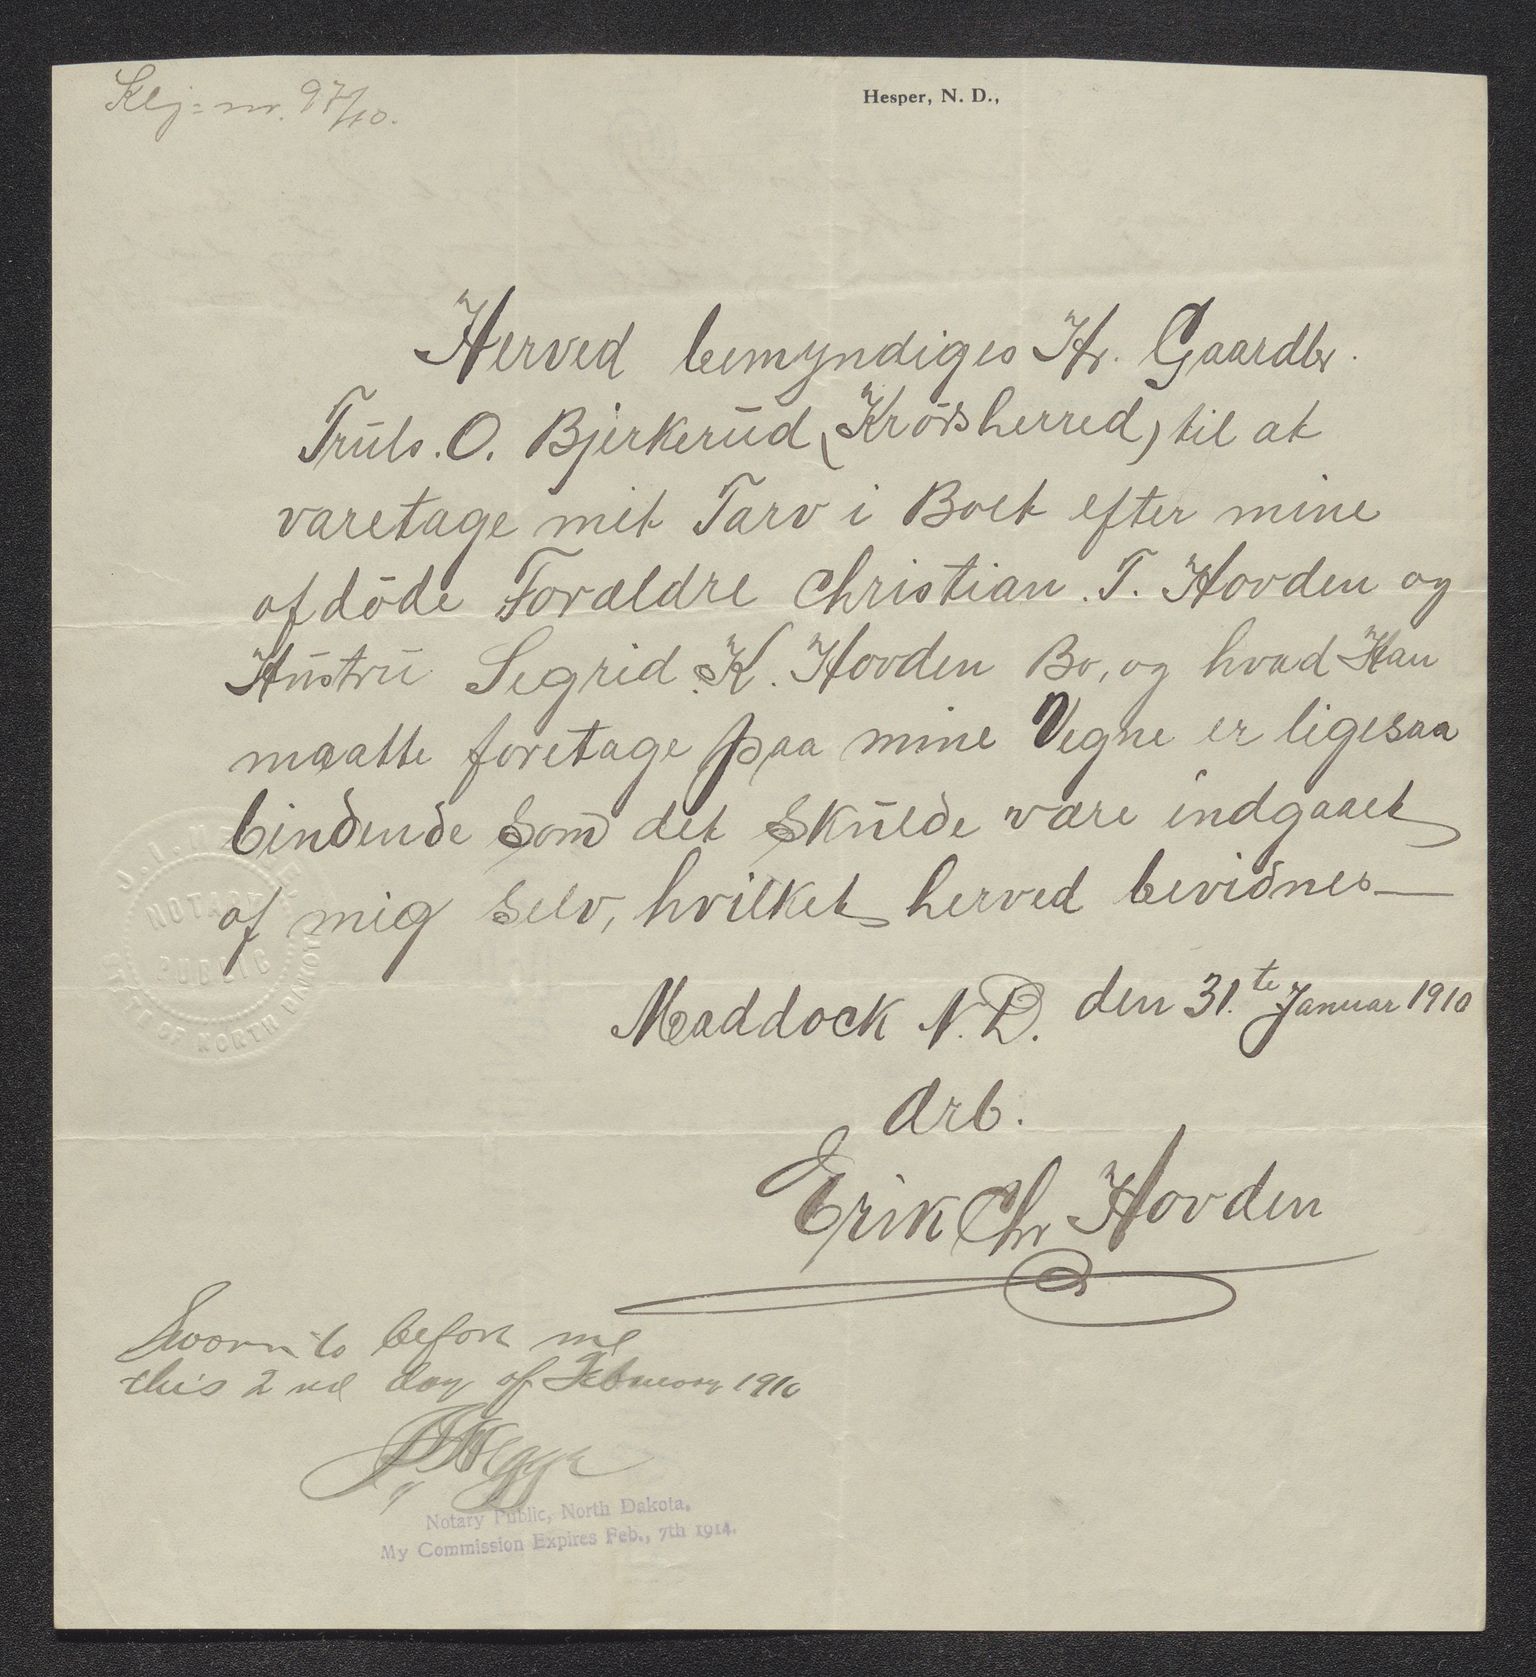 Skj=nr. 97/10.
Hesper, N. D.,
Herved bemyndiges Hr. Gaardbr.
Truls. O. Bjerkerud (Krödsherred) til at
varetage mit Tarv i Boet efter mine
afdöde Forældre Christian. T. Hovden og
Hustru Segrid. K. Hovden Bo, og hvad Han
maatte foretage paa mine Vegne er ligesaa
bindende som det skulde være indgaaet
af mig selv, hvilket herved bevidnes—
Maddock N. D. den 31.te Januar 1910
ærb.
Erik Chr Hovden
Sworn to before me
this 2nd day of February 1910
Notary Public, North Dakota.
My Commission Expires Feb., 7th 1914.
NOTARY
PUBLIC
STATE OF NORTH DAKOTA